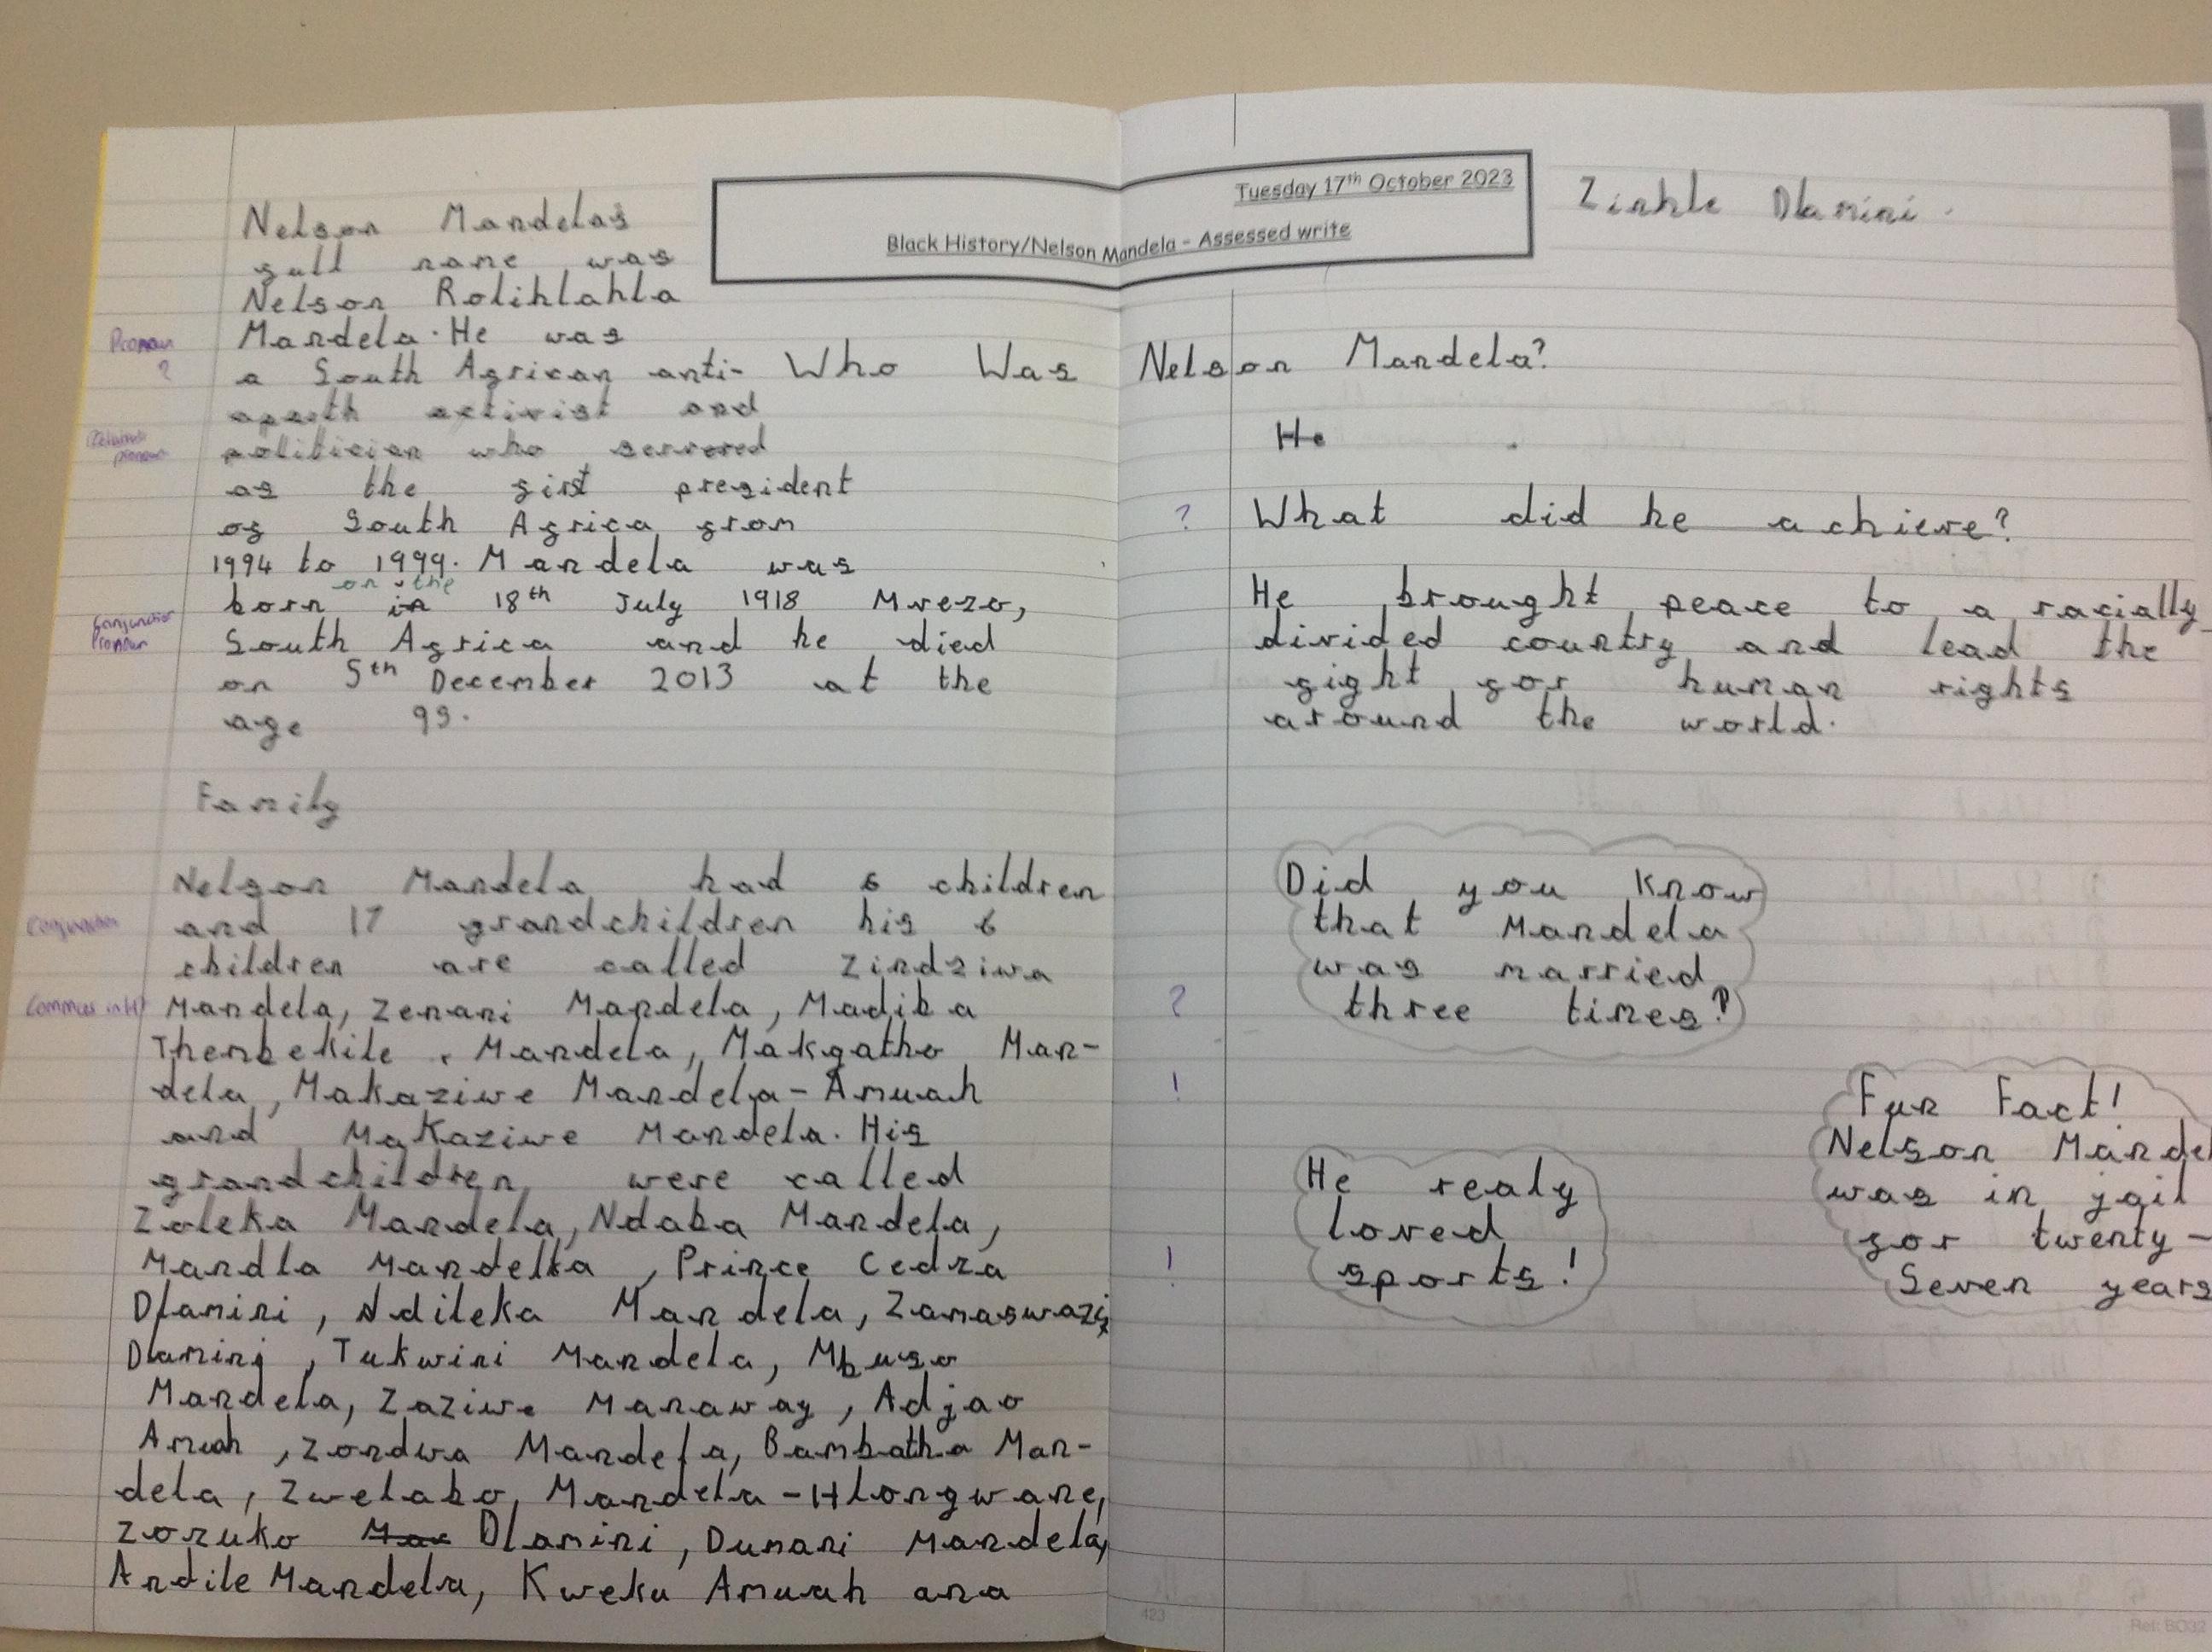 Tuesday 17th October 2023
Black History/Nelson Mandela - Assessed write
Nelson Mandelas
full name was
Nelson Rolihlahla
Mandela. He was
a South African anti-
activist and
politician who
as the first president
of South Africa from
1994 to 1999. Mandela was
on the
born in 18th July 1918 Mvezo,
South Africa and he died
on 5th December 2013 at the
age 95.
Family
Nelson Mandela had 6 children
and 17 grandchildren his 6
children are called Zindziwa
Mandela, Zenani Mandela, Madiba
Thembekile . Mandela, Makgatho Man-
dela, Makaziwe Mandela-Amuah
and Makaziwe Mandela. His
grandchildren were called
Zoleka Mandela, Ndaba Mandela,
Mandla Mandela, Prince Cedza
Dlamini, Ndileka Mandela, Zamaswazi
Dlamini, Tukwini Mandela, Mbuso
Mandela, Zaziwe Manaway, Adjao
Amuah, Zondwa Mandela, Bambatha Man-
dela, Zwelabo, Mandela-Hlongwane,
Zozuko Dlamini, Dumani Mandela,
Andile Mandela, Kweku Amuah and
Pronoun
?
pronoun
Conjunction
Pronoun
Conjunction
Commas in list
Zinhle Dlamini.
Who Was Nelson Mandela?
He
? What did he achieve?
He brought peace to a racially
divided country and lead the
fight for human rights
around the world.
Did you know
that Mandela
was married
? three times?
!
Fun Fact!
Nelson Mandel
was in jail
for twenty-
Seven years
He realy
loved
! sports!
423